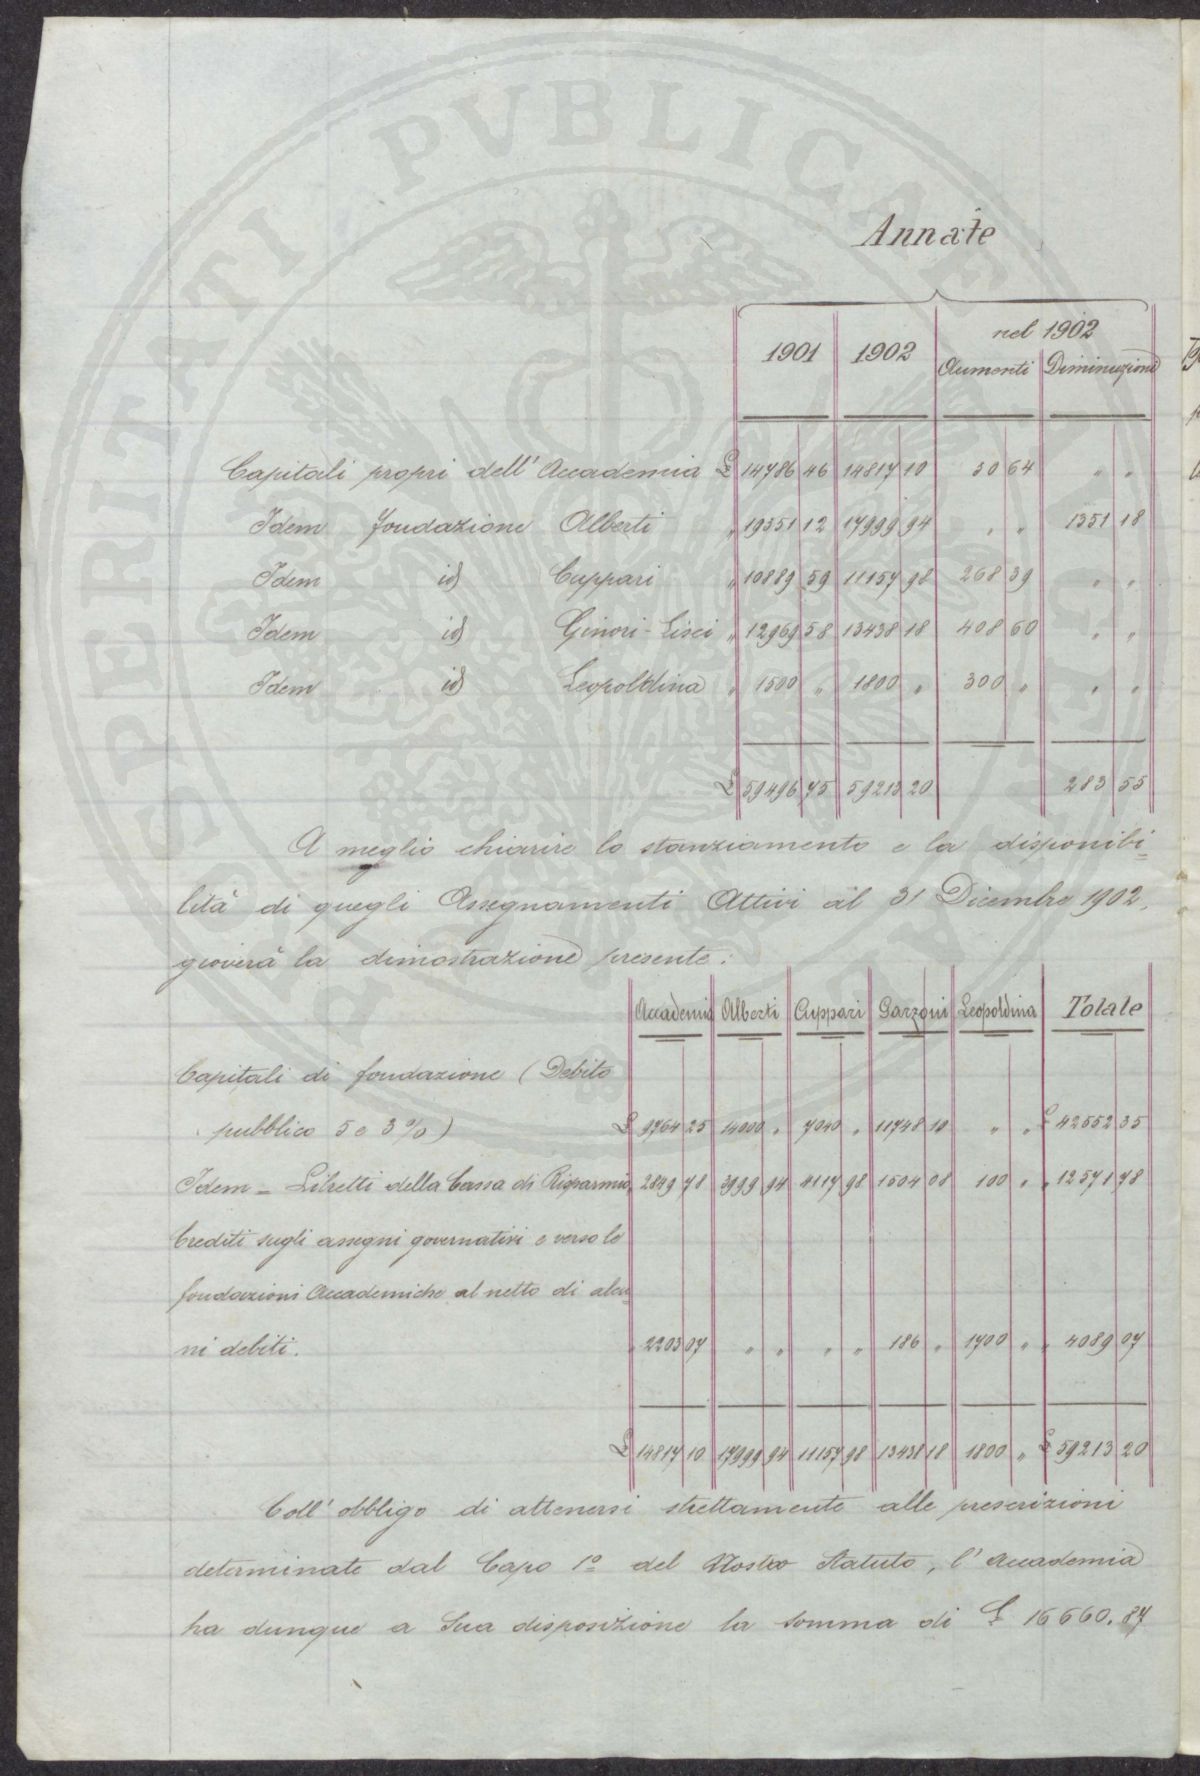 PROSPERITATI PVBLICAE AVGENDAE
Annate
nel 1902
1901 1902 Aumenti Diminuzioni
Capitali propri dell' Accademia £ 14786 46 14817 10 30 64 " "
Idem fondazione Alberti " 19351 12 17999 94 " " 1351 18
Idem id Cuppari " 10889 59 11157 98 268 39 " "
Idem id Ginori-Lisci " 12969 58 13438 18 468 60 " "
Idem id Leopoldina " 1500 " 1800 " 300 " " "
£ 59496 75 59213 20 283 55
A meglio chiarire lo stanziamento e la disponibi=
lità di quegli Assegnamenti Attivi al 31 Dicembre 1902,
gioverà la dimostrazione presente:
Accademia Alberti Cuppari Garzoni Leopoldina Totale
Capitali di fondazione (Debito
pubblico 5 e 3%) £ 9764 25 14000 " 7040 " 11748 10 " " £ 42552 35
Idem = Libretti della Cassa di Risparmio " 2849 78 3999 94 4117 98 1504 08 100 " " 12571 78
Crediti sugli assegni governativi e verso le
fondazioni Accademiche al netto di alcu=
ni debiti. " 2203 07 " " " " 186 " 1700 " " 4089 07
£ 14817 10 17999 94 11157 98 13438 18 1800 " £ 59213 20
Coll' obbligo di attenersi strettamente alle prescrizioni
determinate dal Capo 1º del Nostro Statuto, l' Accademia
ha dunque a Sua disposizione la somma di £ 16660.87